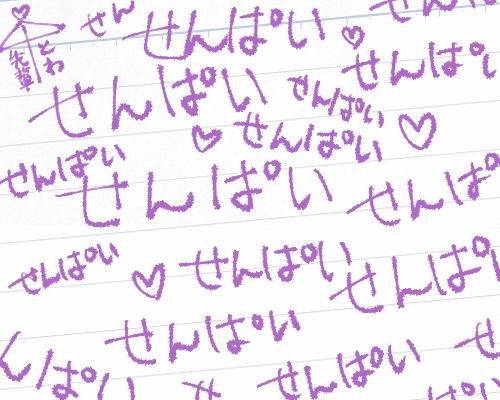 せん
せんぱい
先輩
とわ
せんぱい
せんぱい
せんぱい
せんぱい
せんぱい
せんぱい
せんぱ
せんぱい
せんぱい
せんぱ
せんぱい
んぱい
せんぱい
せ